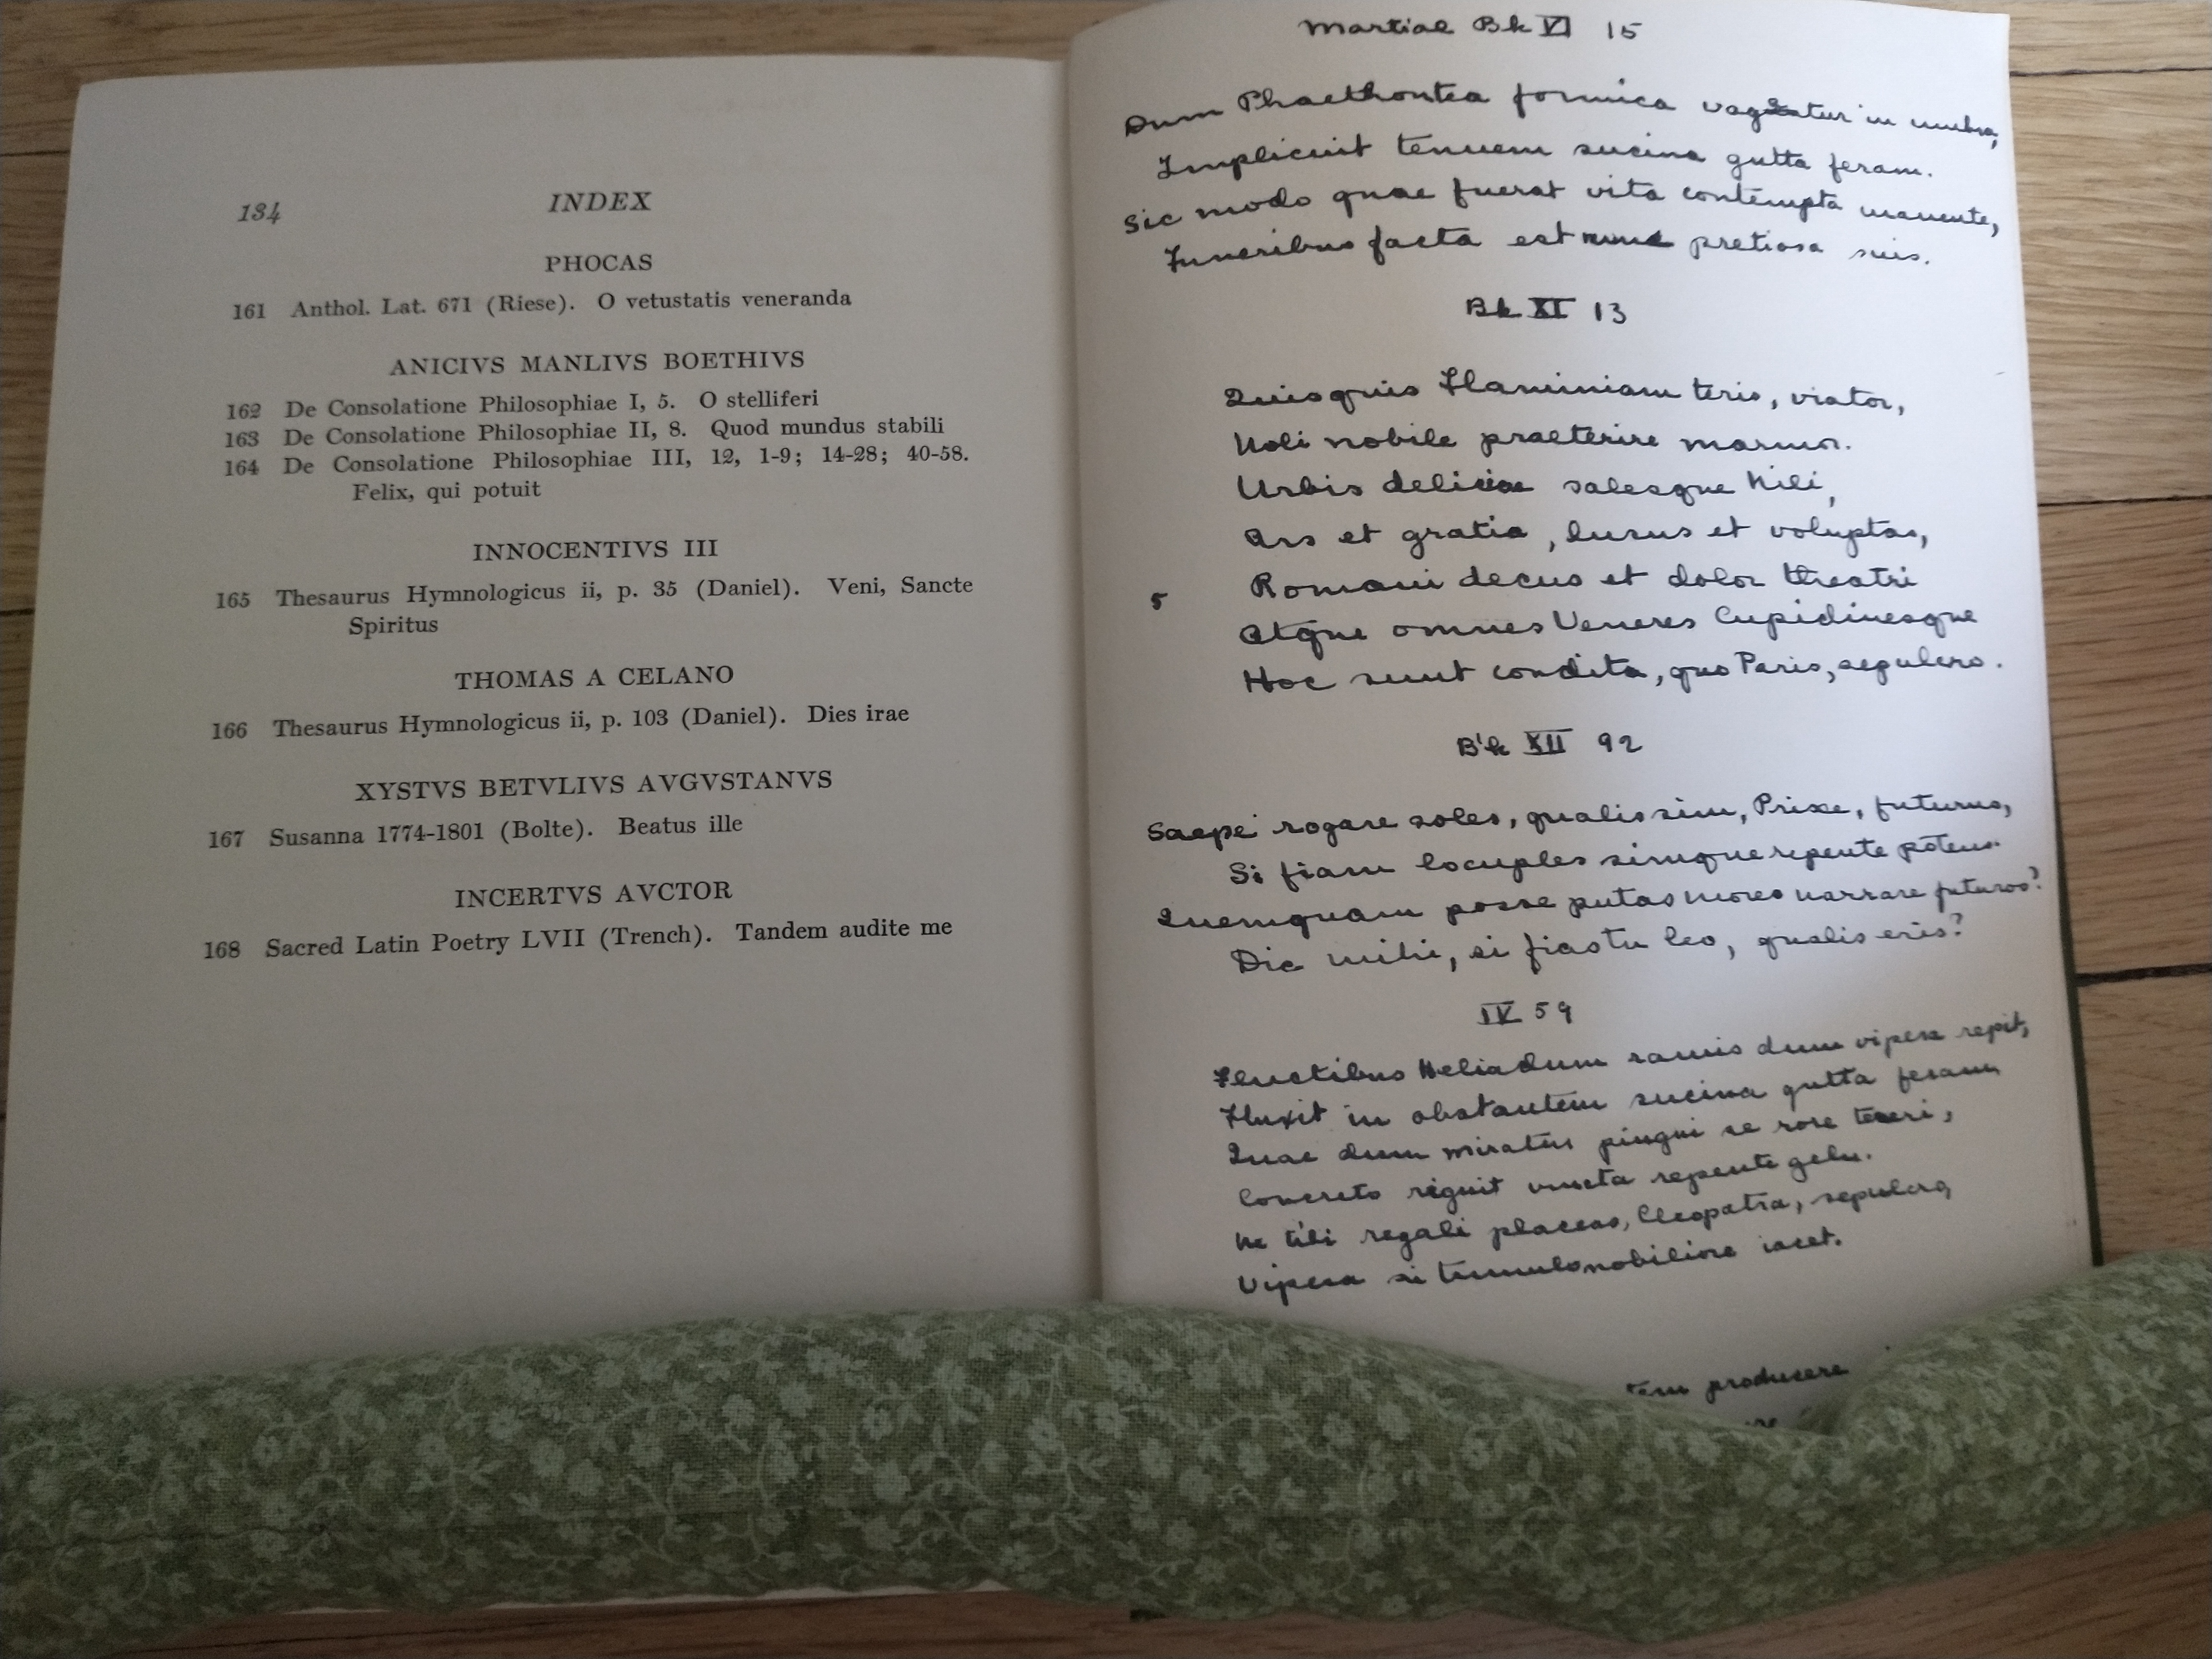 134 INDEX
PHOCAS
161 Anthol. Lat. 671 (Riese). O vetustatis veneranda
ANICIVS MANLIVS BOETHIVS
162 De Consolatione Philosophiae I, 5. O stelliferi
163 De Consolatione Philosophiae II, 8. Quod mundus stabili
164 De Consolatione Philosophiae III, 12, 1-9; 14-28; 40-58.
Felix, qui potuit
INNOCENTIVS III
165 Thesaurus Hymnologicus ii, p. 35 (Daniel). Veni, Sancte
Spiritus
THOMAS A CELANO
166 Thesaurus Hymnologicus ii, p. 103 (Daniel). Dies irae
XYSTVS BETVLIVS AVGVSTANVS
167 Susanna 1774-1801 (Bolte). Beatus ille
INCERTVS AVCTOR
168 Sacred Latin Poetry LVII (Trench). Tandem audite me
Martial Bk VI 15
Dum Phaethontea formica vagatur in umbra,
Implicuit tenuem sucina gutta feram.
Sic modo quae fuerat vita contempta manente,
Funeribus facta est nunc pretiosa suis.
Bk XI 13
Quisquis Flaminiam teris, viator,
Noli nobile praeterire marmor.
Urbis deliciae salesque Nili,
Ars et gratia, lusus et voluptas,
5 Romani decus et dolor theatri
Atque omnes Veneres Cupidinesque
Hoc sunt condita, quo Paris, sepulcro.
Bk XII 92
Saepe rogare soles, qualis sim, Prisce, futurus,
Si fiam locuples simque repente potens.
Quemquam posse putas mores narrare futuros?
Dic mihi, si fias tu leo, qualis eris?
IV 59
Fluctibus Heliadum ramis dum vipera repit,
Fluxit in obstantem sucina gutta feram,
Quae dum miratur pingui se rore teneri,
Concreto riguit vincta repente gelu.
Ne tibi regali placeas, Cleopatra, sepulcro,
Vipera si tumulo nobiliore iacet.
producere